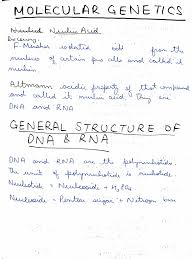 MOLECULAR GENETICS
Nucleic Acid
Discovery:
F. Meisher isolated from the
nucleus of certain pus cells and called it
nuclein
Altmann acidic property of that compound
and called it nucleic acid, they are
DNA and RNA
GENERAL STRUCTURE OF
DNA & RNA
DNA and RNA are the polynucleotide.
The unit of polynucleotide is nucleotide.
Nucleotide = Nucleoside + H3PO4
Nucleoside = Pentose sugar + Nitrogen base